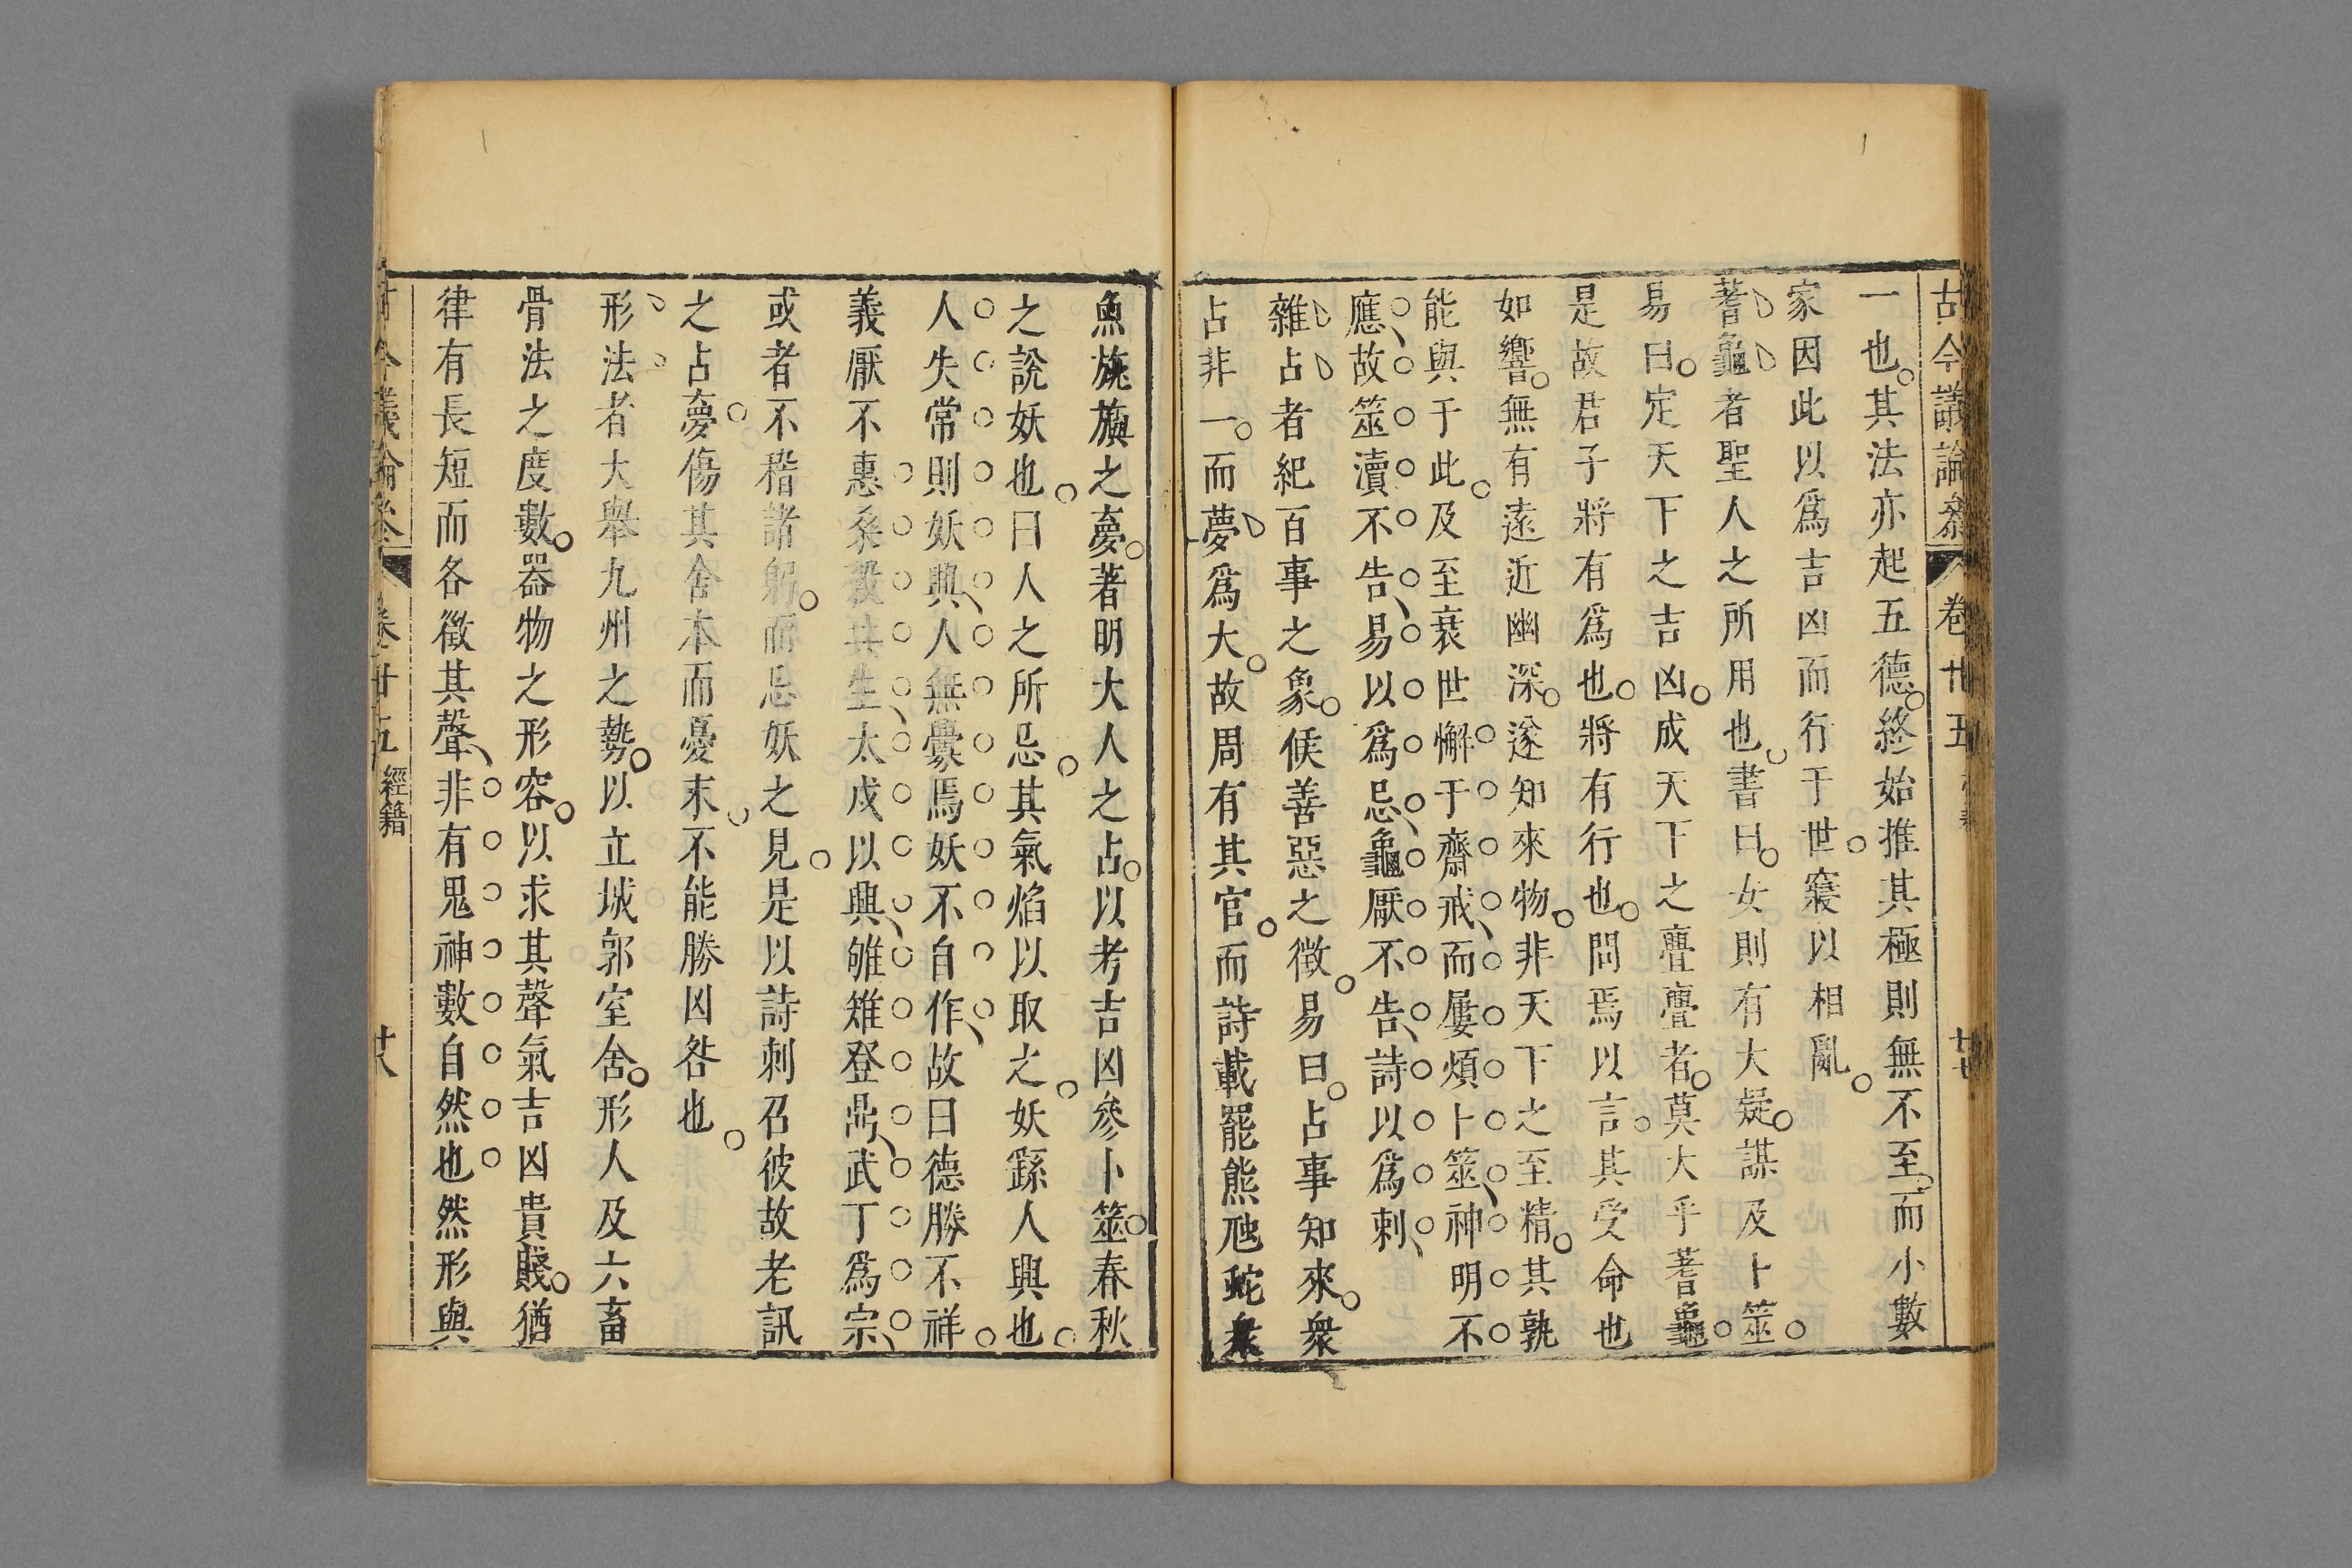 古今議論參 卷廿五 廿七
一也其法亦起五德終始推其極則無不至而小數
家因此以爲吉凶而行于世寖以相亂
蓍龜者聖人之所用也書曰女則有大疑謀及卜筮
易曰定天下之吉凶成天下之亹亹者莫大乎蓍龜
是故君子將有爲也將有行也問焉以言其受命也
如響無有遠近幽深遂知來物非天下之至精其孰
能與于此及至衰世懈于齋戒而屢煩卜筮神明不
應故筮瀆不告易以爲忌龜厭不告詩以爲刺
雜占者紀百事之象候善惡之徵易曰占事知來衆
占非一而夢爲大故周有其官而詩載罷熊虺蛇衆
魚旐旟之夢著明大人之占以考吉凶參卜筮春秋
之說妖也曰人之所忌其氣焰以取之妖繇人興也
人失常則妖興人無釁焉妖不自作故曰德勝不祥
義厭不惠桑榖共生太戊以興雊雉登鼎武丁爲宗
或者不稽諸躬而忌妖之見是以詩刺召彼故老訊
之占夢傷其舍本而憂末不能勝凶咎也
形法者大舉九州之勢以立城郭室舍形人及六畜
骨法之度數器物之形容以求其聲氣吉凶貴賤猶
律有長短而各徵其聲非有鬼神數自然也然形與
古今議論參 卷廿五 經籍 廿八